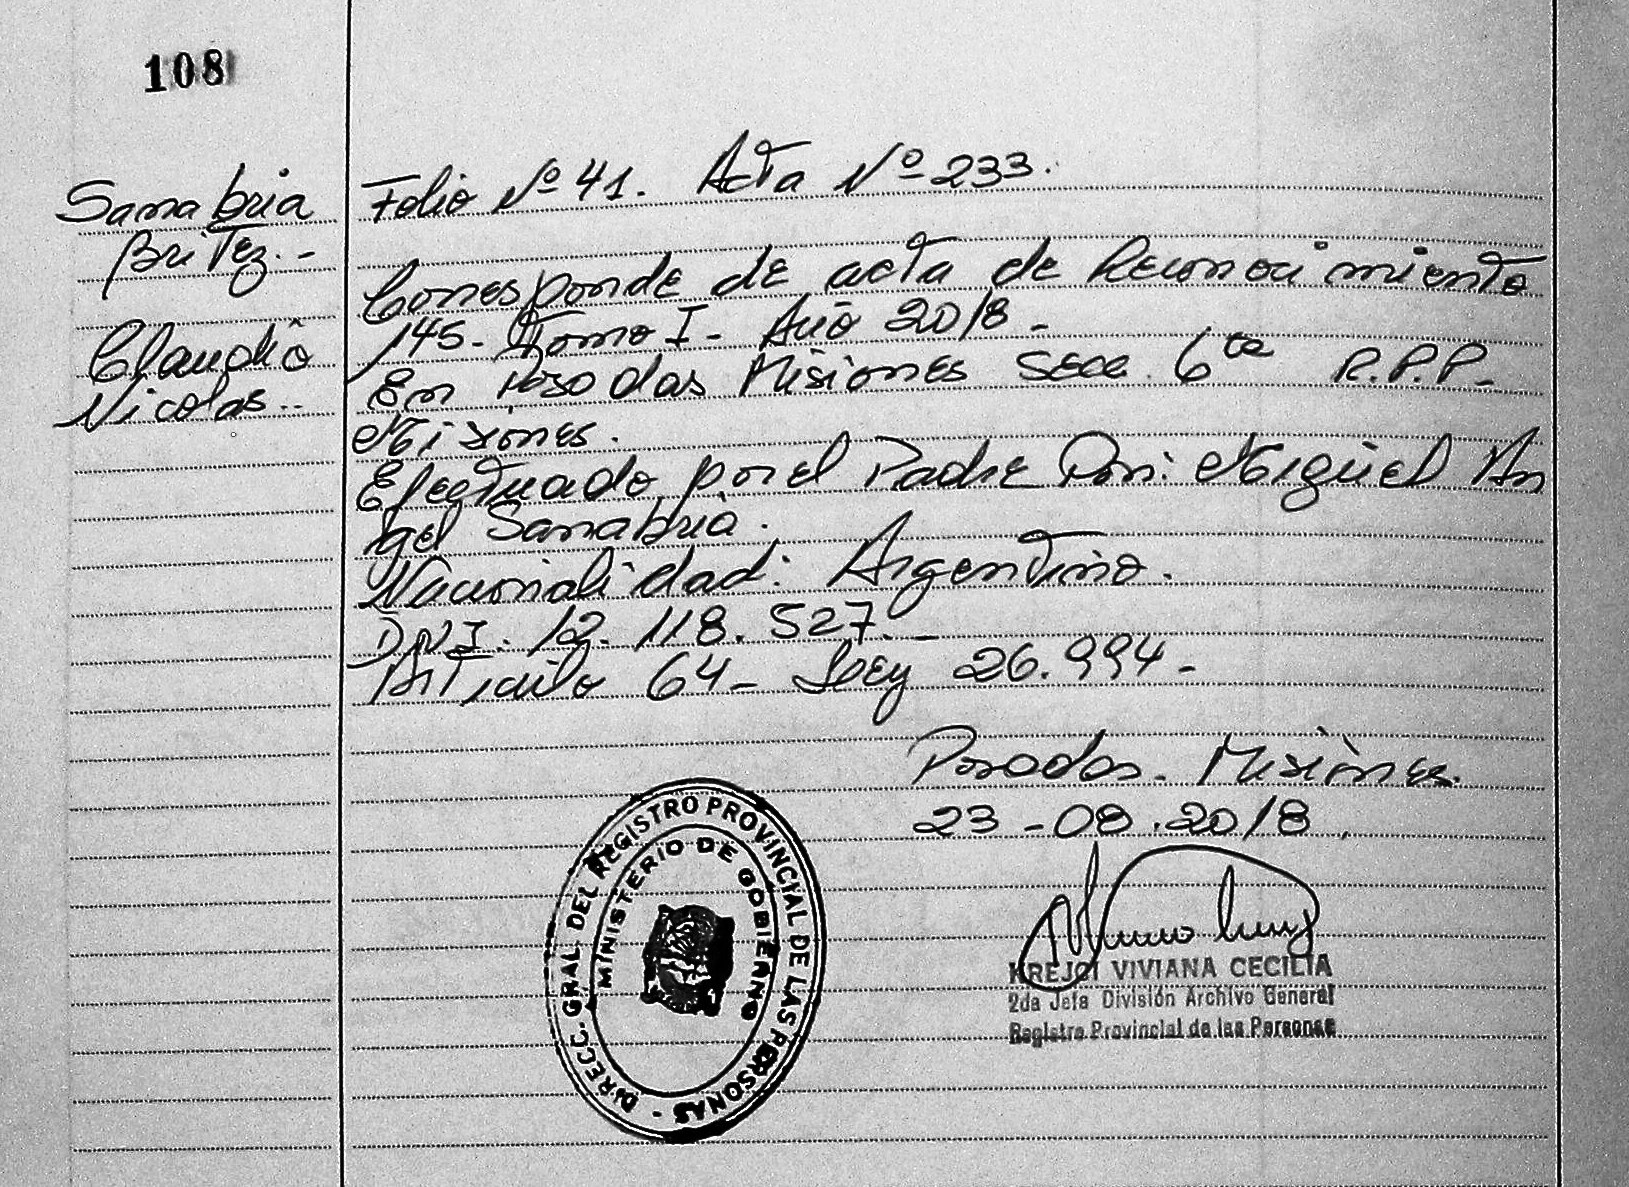 108
Sanabria
Britez.-
Claudio
Nicolas..
Folio Nº 41. Acta Nº 233.
Corresponde de acta de Reconocimiento
145- Tomo I- Año 2018-
En Posadas Misiones Secc. 6ta R.P.P-
Misiones.
Efectuado por el Padre Don: Miguel An
gel Sanabria.
Nacionalidad: Argentino.
DNI. 12.118.527.-
Articulo 64- Ley 26.994-
Posadas- Misiones.
23-08.2018.
DIRECC. GRAL. DEL REGISTRO PROVINCIAL DE LAS PERSONAS -
MINISTERIO DE GOBIERNO
KREJCI VIVIANA CECILIA
2da Jefa División Archivo General
Registro Provincial de las Personas